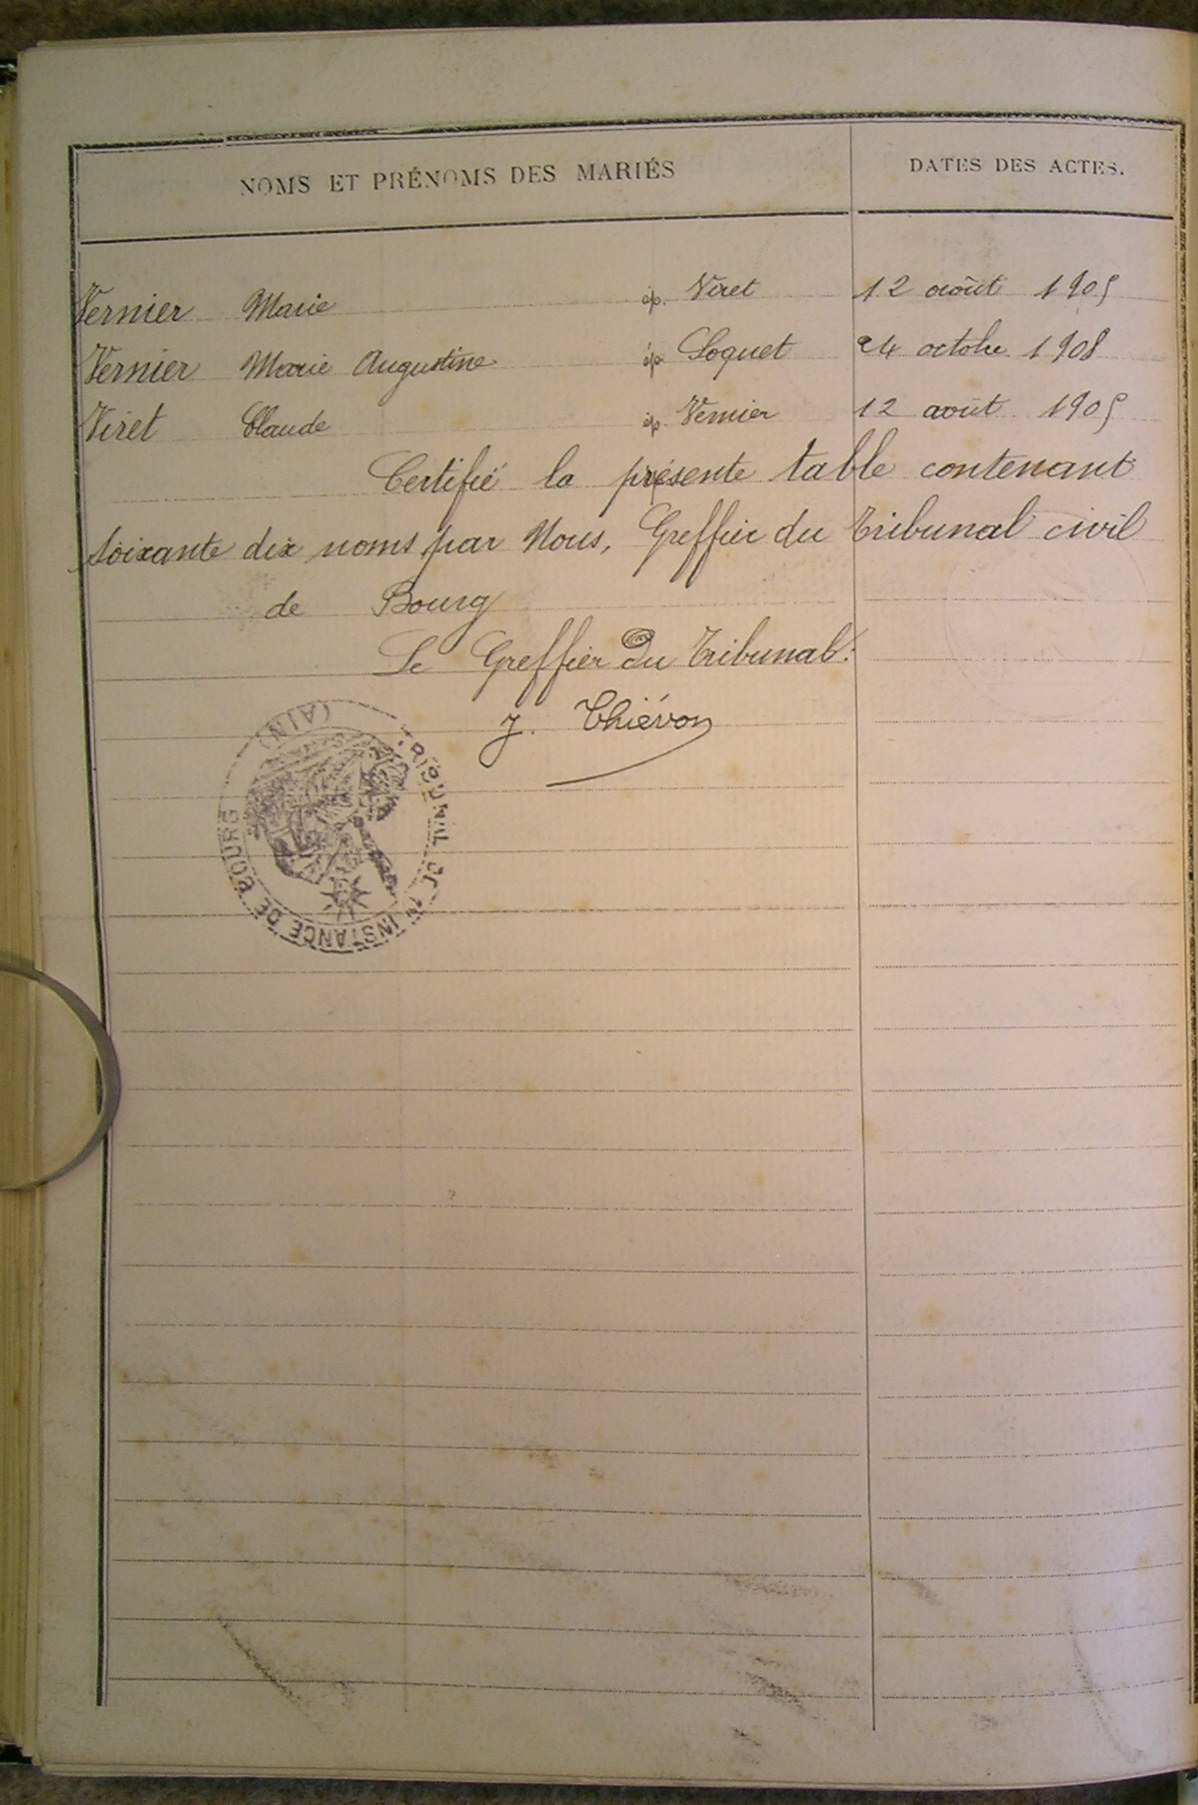 NOMS ET PRÉNOMS DES MARIÉS DATES DES ACTES.
Vernier Marie ép. Viret 12 août 1905
Vernier Marie Augustine ép. Loquet 24 octobre 1908
Viret Claude ép. Vernier 12 août 1905
Certifié la présente table contenant
soixante dix noms par Nous, Greffier du Tribunal civil
de Bourg
Le Greffier du Tribunal.
J. Thiévon
TRIBUNAL DE INSTANCE DE BOURG (AIN)